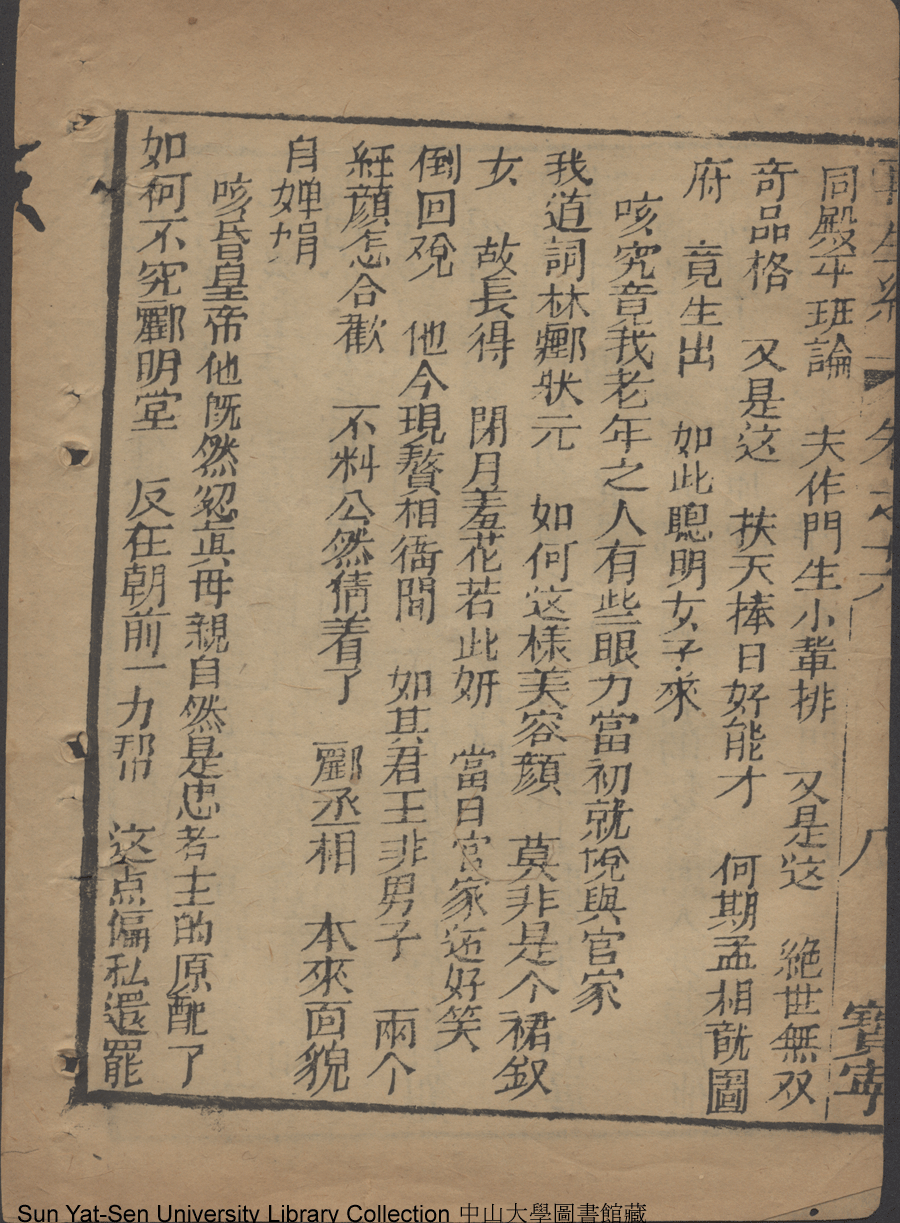 同殿平班論　夫作門生小軰排　又是这　絶世無双
奇品格　又是这　扶天捧日好能才　何期孟相酕圖
府　竟生出　如此聰明女子來
咳究竟我老年之人有些眼力當初就悅與官家
我道詞林酈狀元　如何这樣美容顔　莫非是个裙釵
女　故長得　閉月羞花若此妍　當日官家还好笑
倒回兌　他今現贅相衙間　如其君王非男子　兩个
紅顔怎合歡　不料公然倩着了　酈丞相　本來面貌
自婵娟
咳昏皇帝他旣然忍真母親自然是忠者主的原配了
如何不究酈明堂　反在朝前一力帮　这点偏私還罷
八
寶寧
Sun Yat-Sen University Library Collection 中山大學圖書館藏